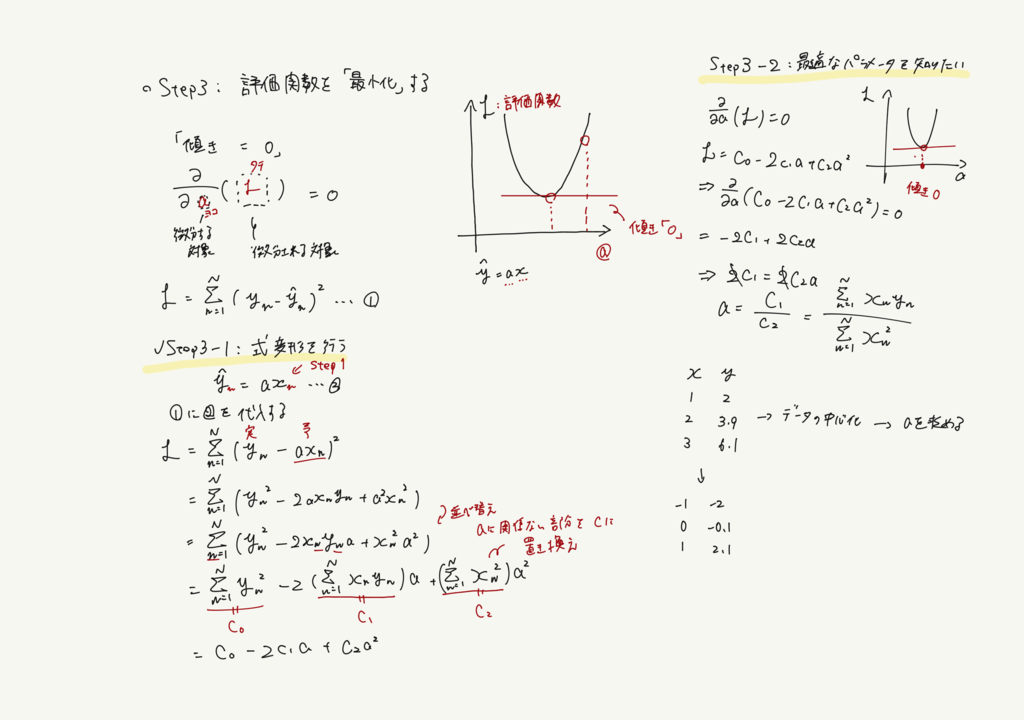 ○Step3: 評価関数を「最小化」する
「傾き = 0」
∂/∂a (L) = 0
タテ
ヨコ
微分する対象
微分される対象
L = Σ_{n=1}^{N} (y_n - ŷ_n)² … ①
✓Step3-1: 式変形を行う
ŷ_n = ax_n … ②
← Step1
①に②を代入する
実 予
L = Σ_{n=1}^{N} (y_n - ax_n)²
= Σ_{n=1}^{N} (y_n² - 2ax_n y_n + a²x_n²)
= Σ_{n=1}^{N} (y_n² - 2x_n y_n a + x_n² a²)
並べ替え
aに関係ない部分をCに
置き換え
= Σ_{n=1}^{N} y_n² - 2(Σ_{n=1}^{N} x_n y_n)a + (Σ_{n=1}^{N} x_n²)a²
C₀ C₁ C₂
= C₀ - 2C₁a + C₂a²
L: 評価関数
傾き「0」
a
ŷ = ax
Step3-2: 最適なパラメータを知りたい
∂/∂a (L) = 0
L = C₀ - 2C₁a + C₂a²
⇒ ∂/∂a (C₀ - 2C₁a + C₂a²) = 0
= -2C₁ + 2C₂a
⇒ 2C₁ = 2C₂a
a = C₁/C₂ = Σ_{n=1}^{N} x_n y_n / Σ_{n=1}^{N} x_n²
L
a
傾き0
x y
1 2
2 3.9 → データの中心化 → aを求める
3 6.1
↓
-1 -2
0 -0.1
1 2.1